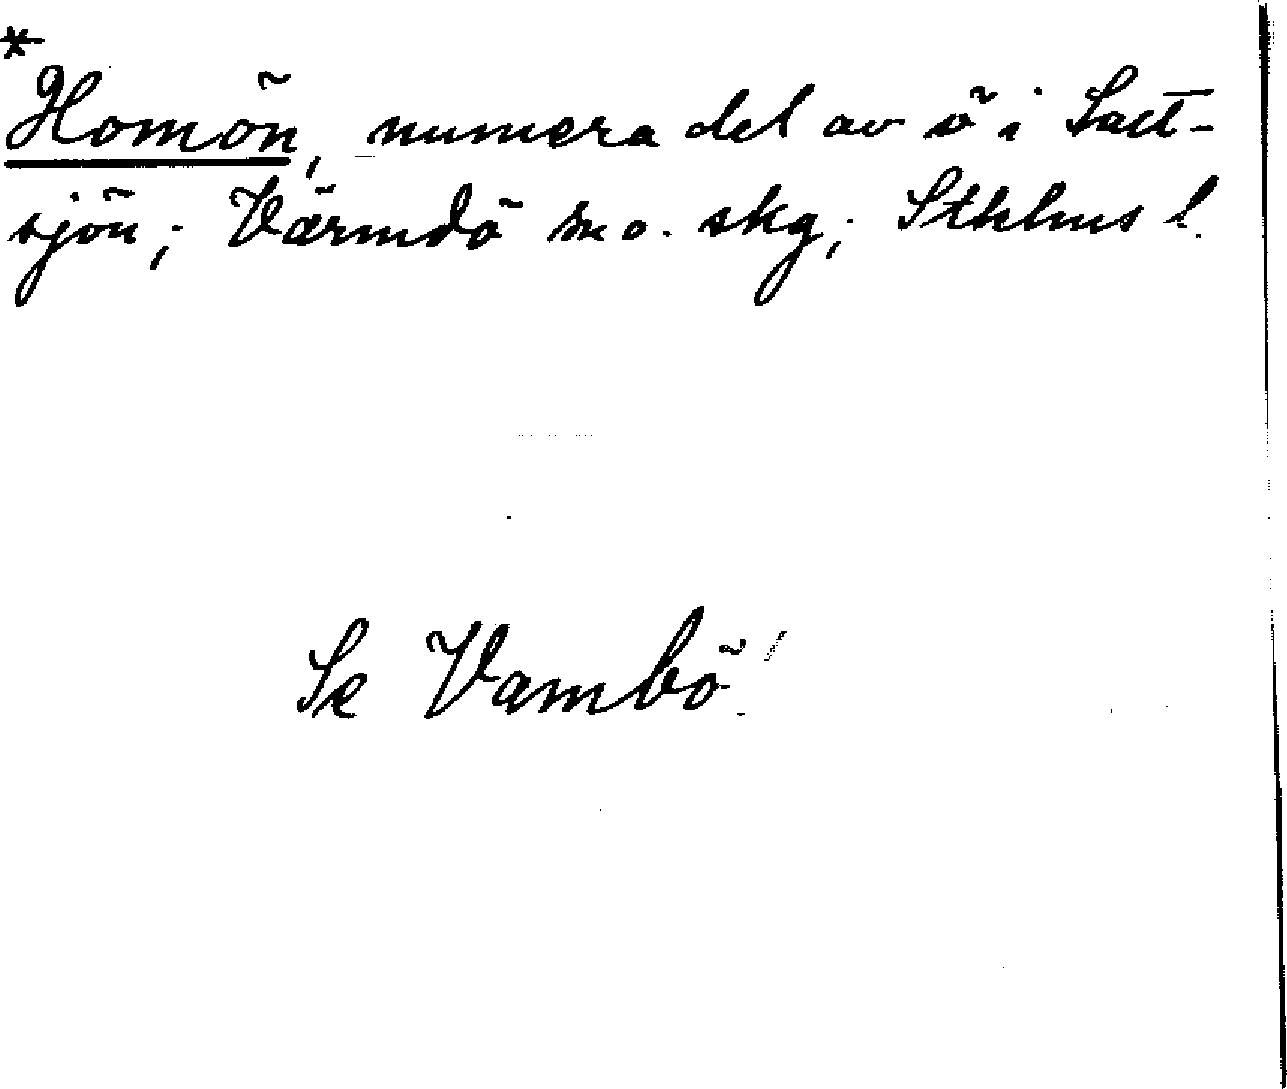 *
Homön, numera del av ö i Salt-
sjön; Värmdö sn o. skg; Sthlms l.
Se Vambö!